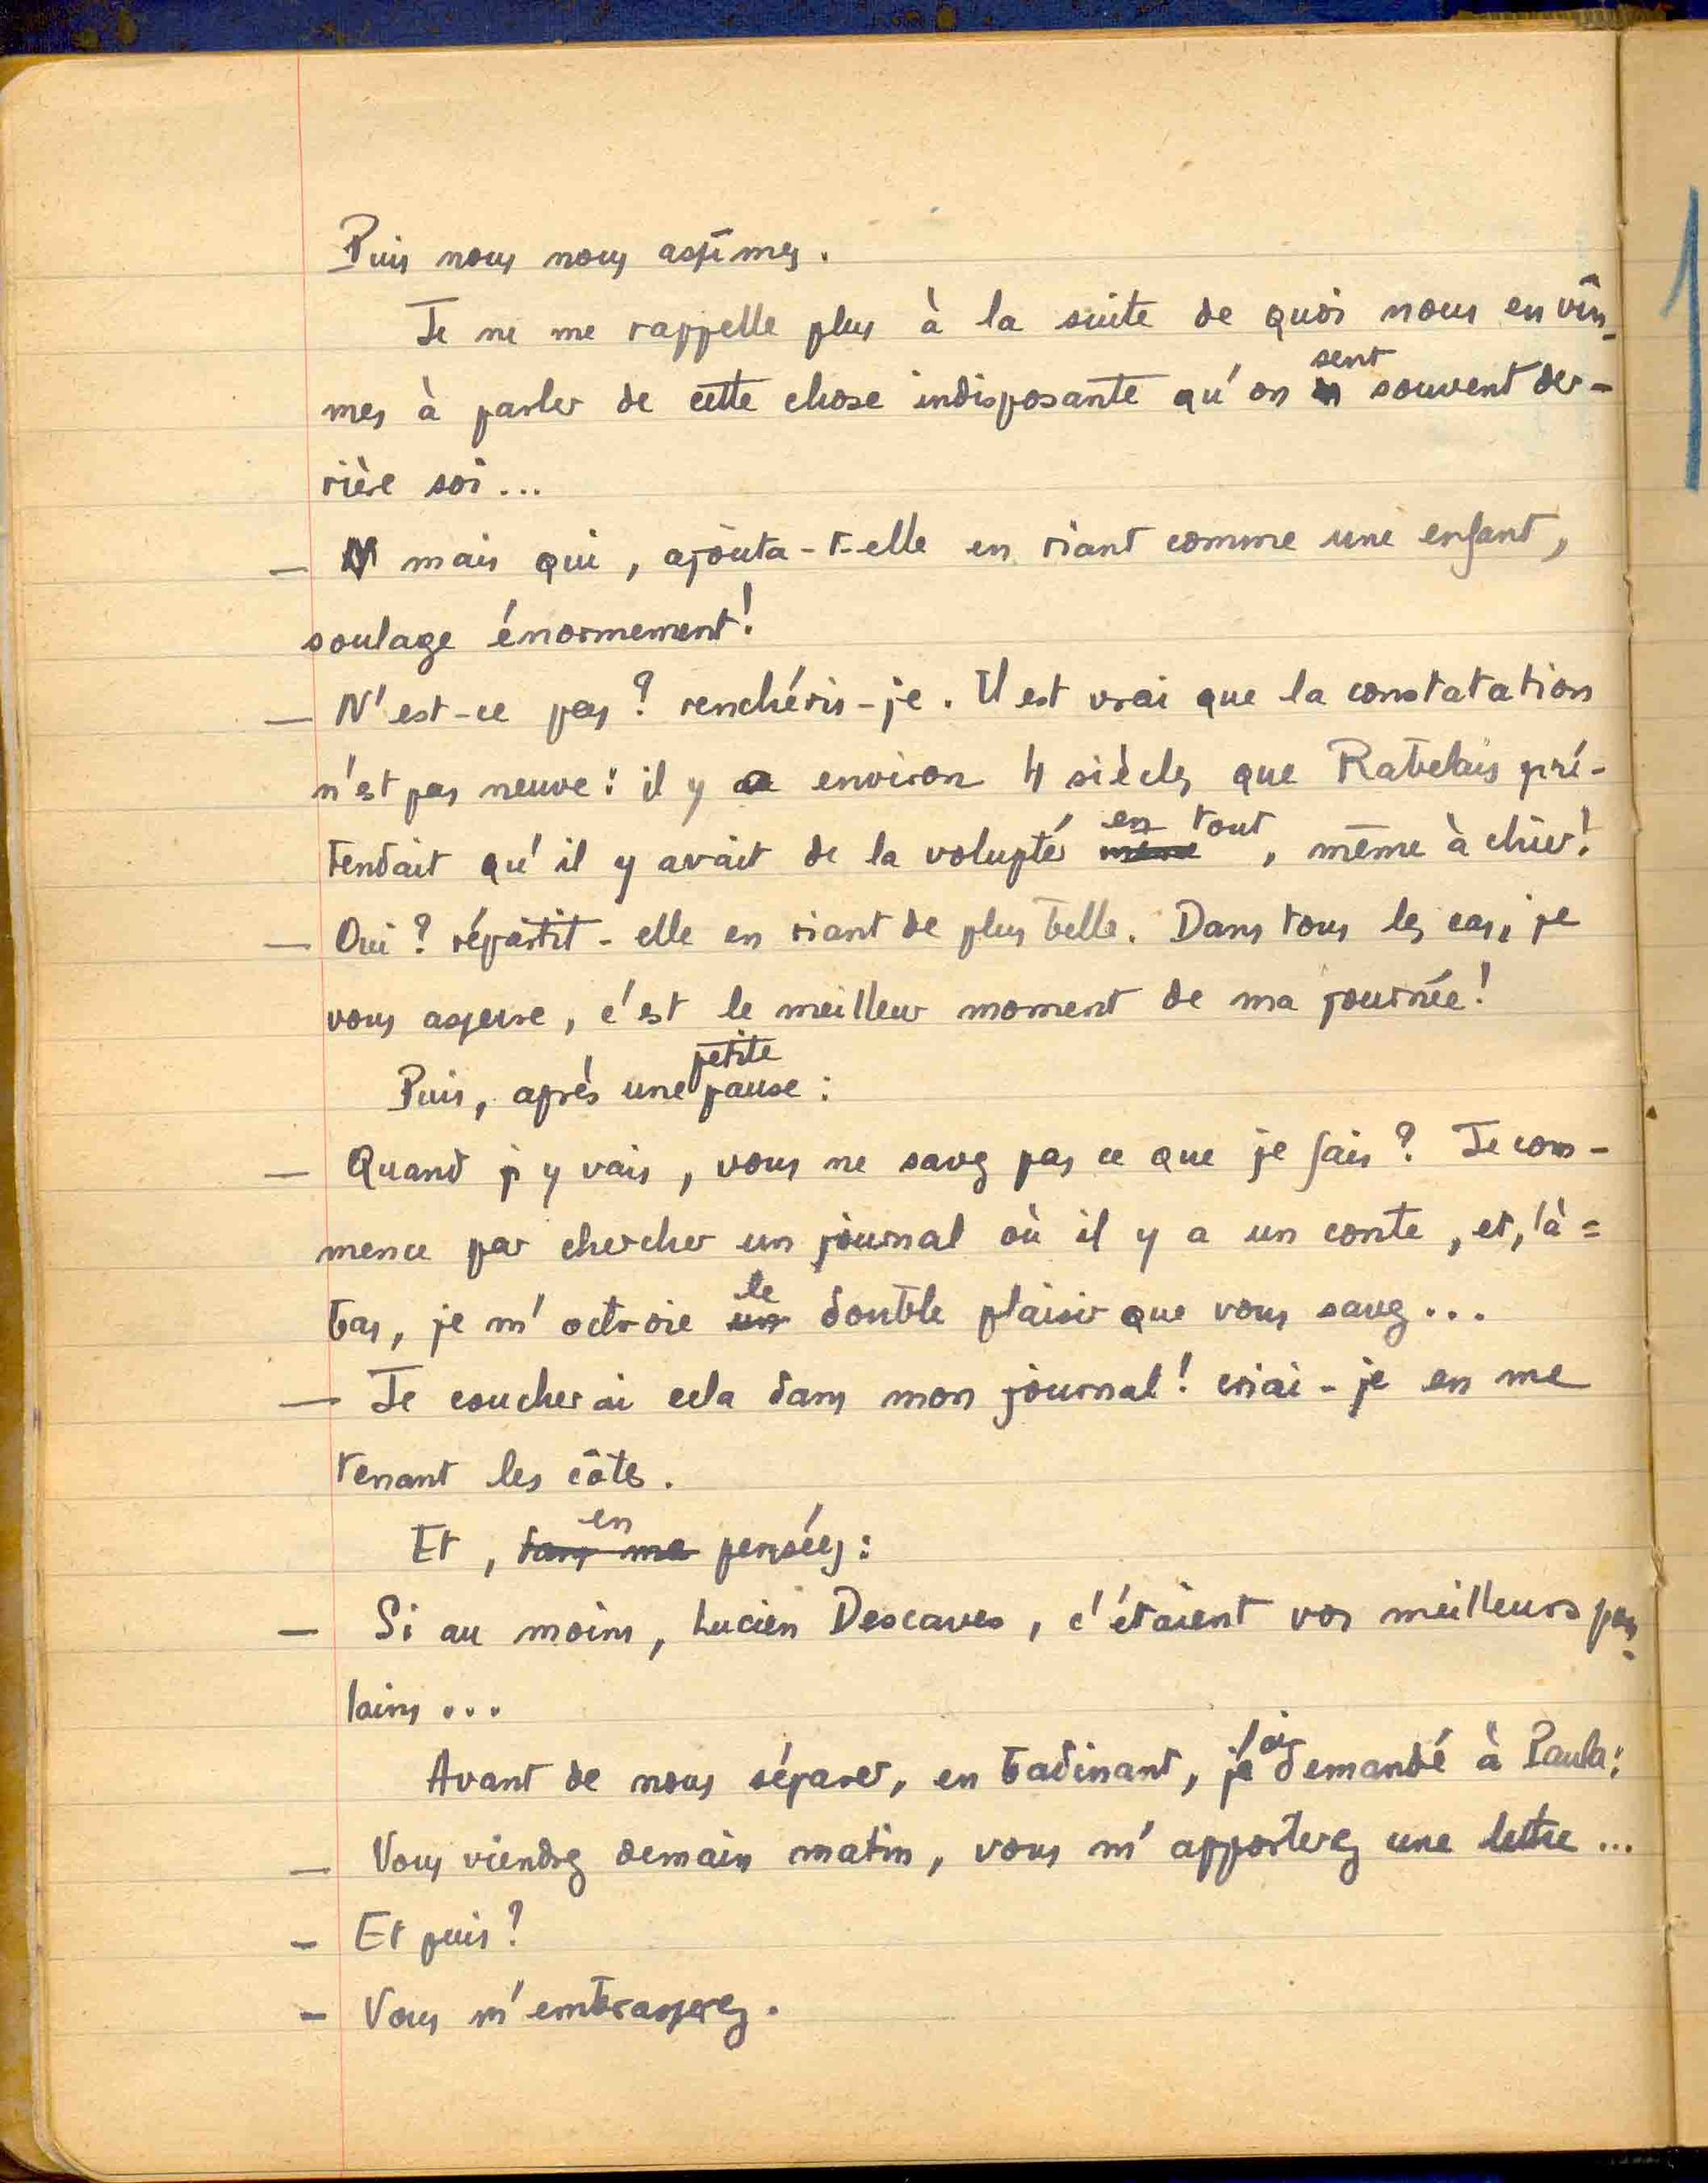 Puis nous nous assîmes.
Je ne me rappelle plus à la suite de quoi nous en vîn-
mes à parler de cette chose indisposante qu'on sent souvent der-
rière soi...
— mais qui, ajouta-t-elle en riant comme une enfant,
soulage énormement!
— N'est-ce pas? renchéris-je. Il est vrai que la constatation
n'est pas neuve: il y a environ 4 siècles que Rabelais pré-
tendait qu'il y avait de la volupté même en tout, même à chier!
— Oui? répartit-elle en riant de plus belle. Dans tous les cas, je
vous assure, c'est le meilleur moment de ma journée!
Puis, après une petite pause:
— Quand j'y vais, vous ne savez pas ce que je fais? Je com-
mence par chercher un journal où il y a un conte, et, là=
bas, je m'octroie un le double plaisir que vous savez...
— Je coucherai cela dans mon journal! criai-je en me
tenant les côtes.
Et, dans ma en pensées:
— Si au moins, Lucien Descaves, c'étaient vos meilleurs pou-
lains...
Avant de nous séparer, en badinant, j'ai demandé à Paula:
— Vous viendrez demain matin, vous m'apporterez une lettre...
— Et puis?
— Vous m'embrasserez.